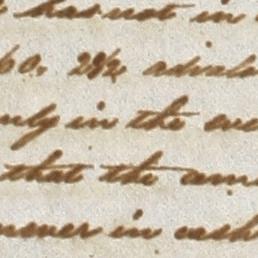 has not in
60. 2 1/2
only in the eve
that the am
in cash